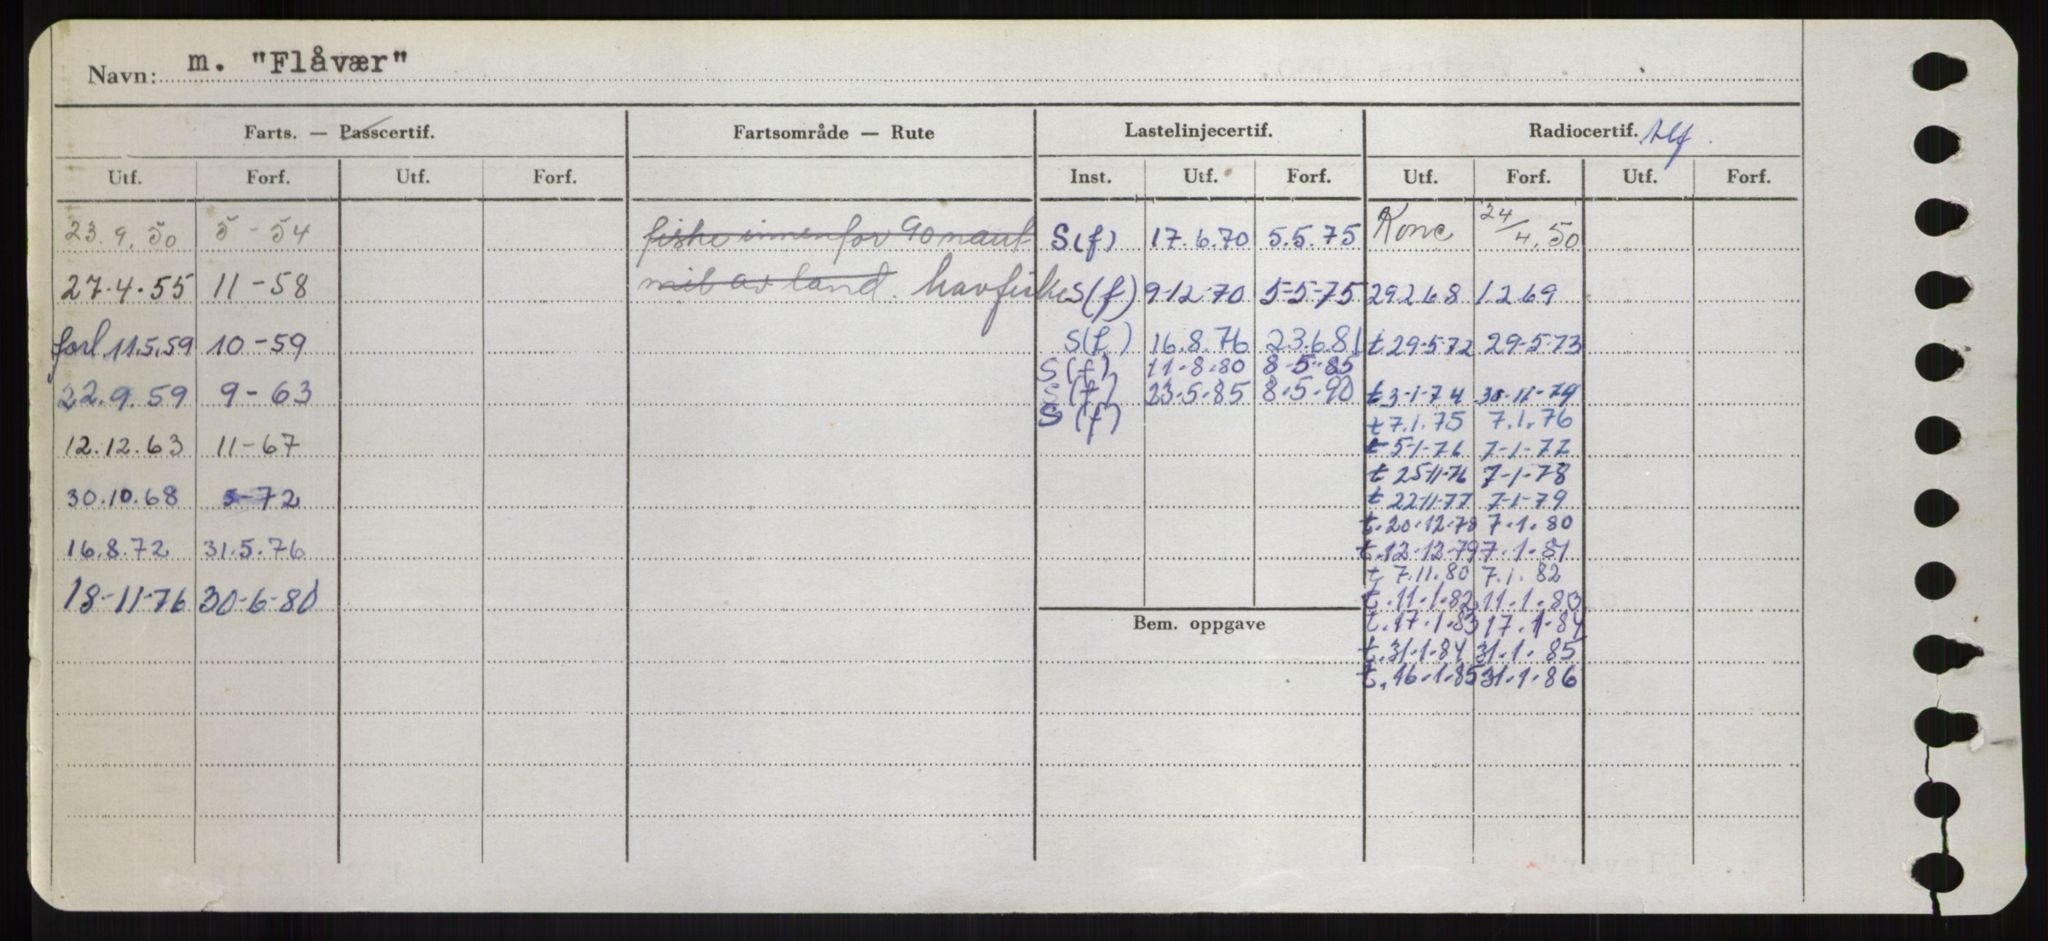 Navn: m. "Flåvær"
Farts. — Passcertif. Fartsområde — Rute Lastelinjecertif. Radiocertif. tlf.
Utf. Forf. Utf. Forf. Inst. Utf. Forf. Utf. Forf. Utf. Forf.
23.9.50 5-54 fiske innenfor 90 naut S(f) 17.6.70 5.5.75 Konc 24/4.50
27.4.55 11-58 mil av land. havfiske S(f) 9-12-70 5-5-75 29268 1269
forl 11.5.59 10-59 S(f) 16.8.76 23.6.81 t 29-5-72 29-5-73
S(f) 11-8-80 8-5-85
22.9.59 9-63 S(f) 23-5-85 8.5.90 t 3-1-74 30-11-79
S(f) t 7.1.75 7.1.76
12.12.63 11-67 t 5-1-76 7-1-77
t 25-11-76 7-1-78
30.10.68 5-72 t 22-11-77 7-1-79
t.20-12-78 7-1-80
16.8.72 31.5.76 t.12-12-79 7-1-81
t 7.11.80 7.1.82
18-11-76 30-6-80 t.11-1-82 11-1-83
Bem. oppgave t.17-1-83 17-1-84
t.31-1-84 31-1-85
t.16-1-85 31-1-86